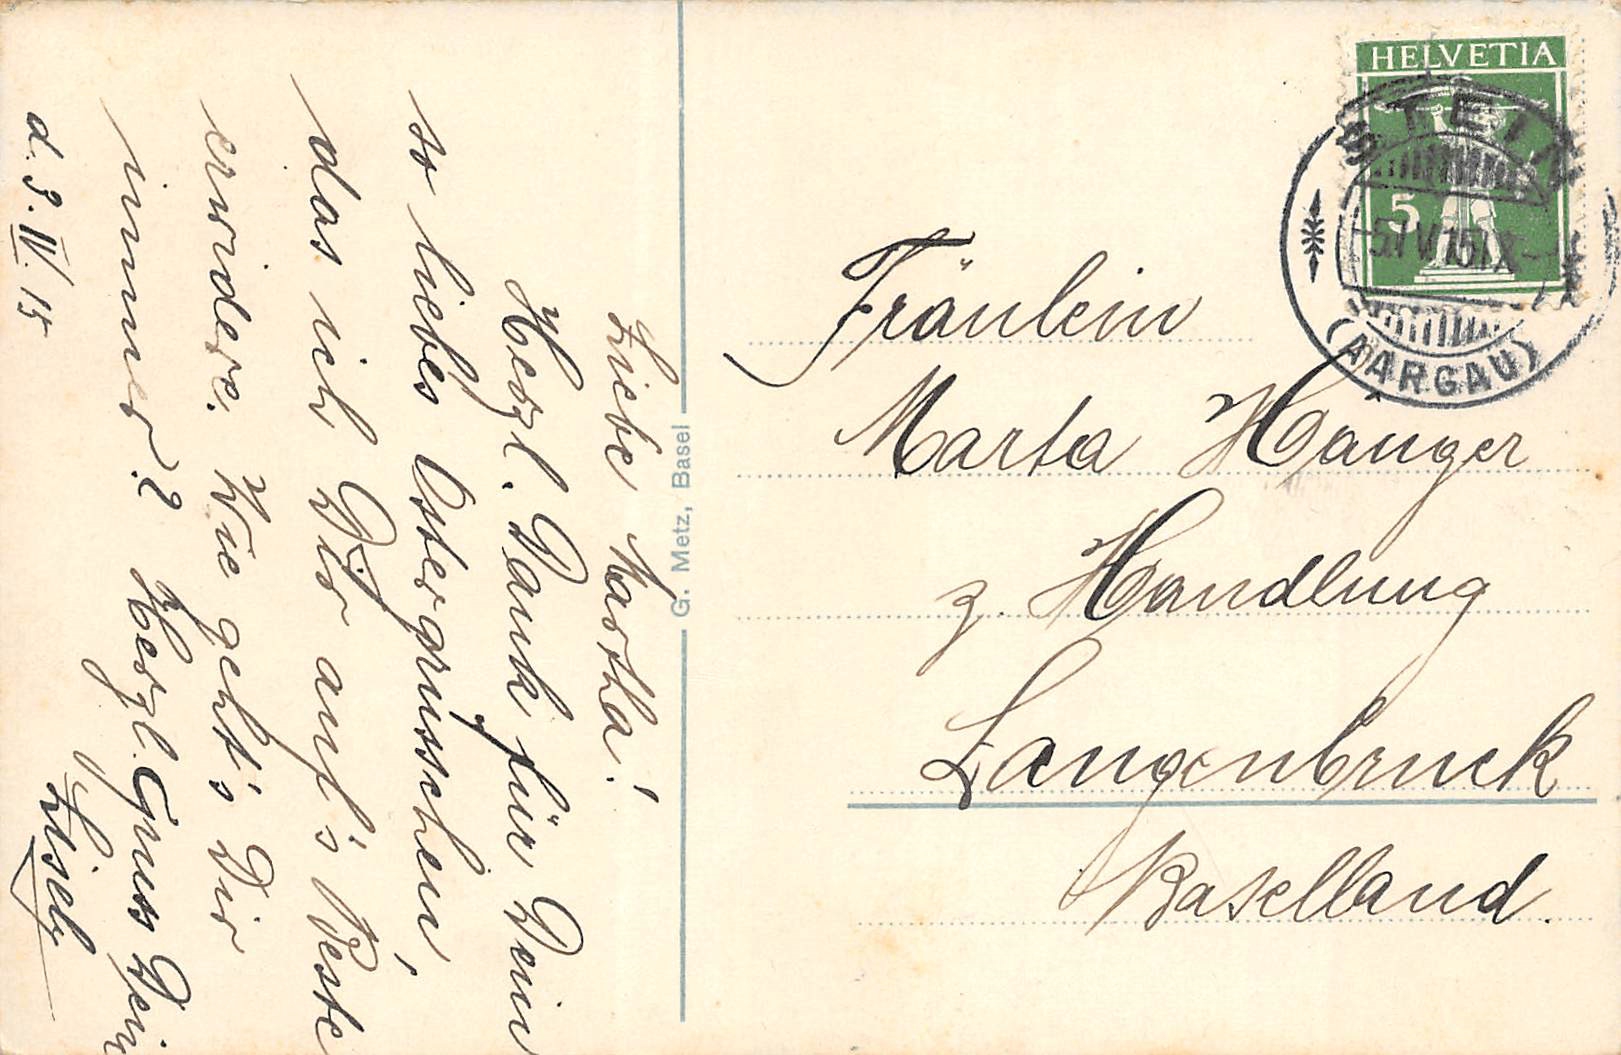 Liebe Martha!
Herzl. Dank für Dein
so liebes Ostergrüsschen,
das ich Dir auf's Beste
erwidere. Wie geht's Dir
immer? Herzl. Gruss Dein
Liseli
d. 3. IV. 15
G. Metz, Basel
HELVETIA
5
STEIN
-5.IV.15.IX-
(AARGAU)
Fräulein
Marta Hauger
z. Handlung
Langenbruck
Baselland.